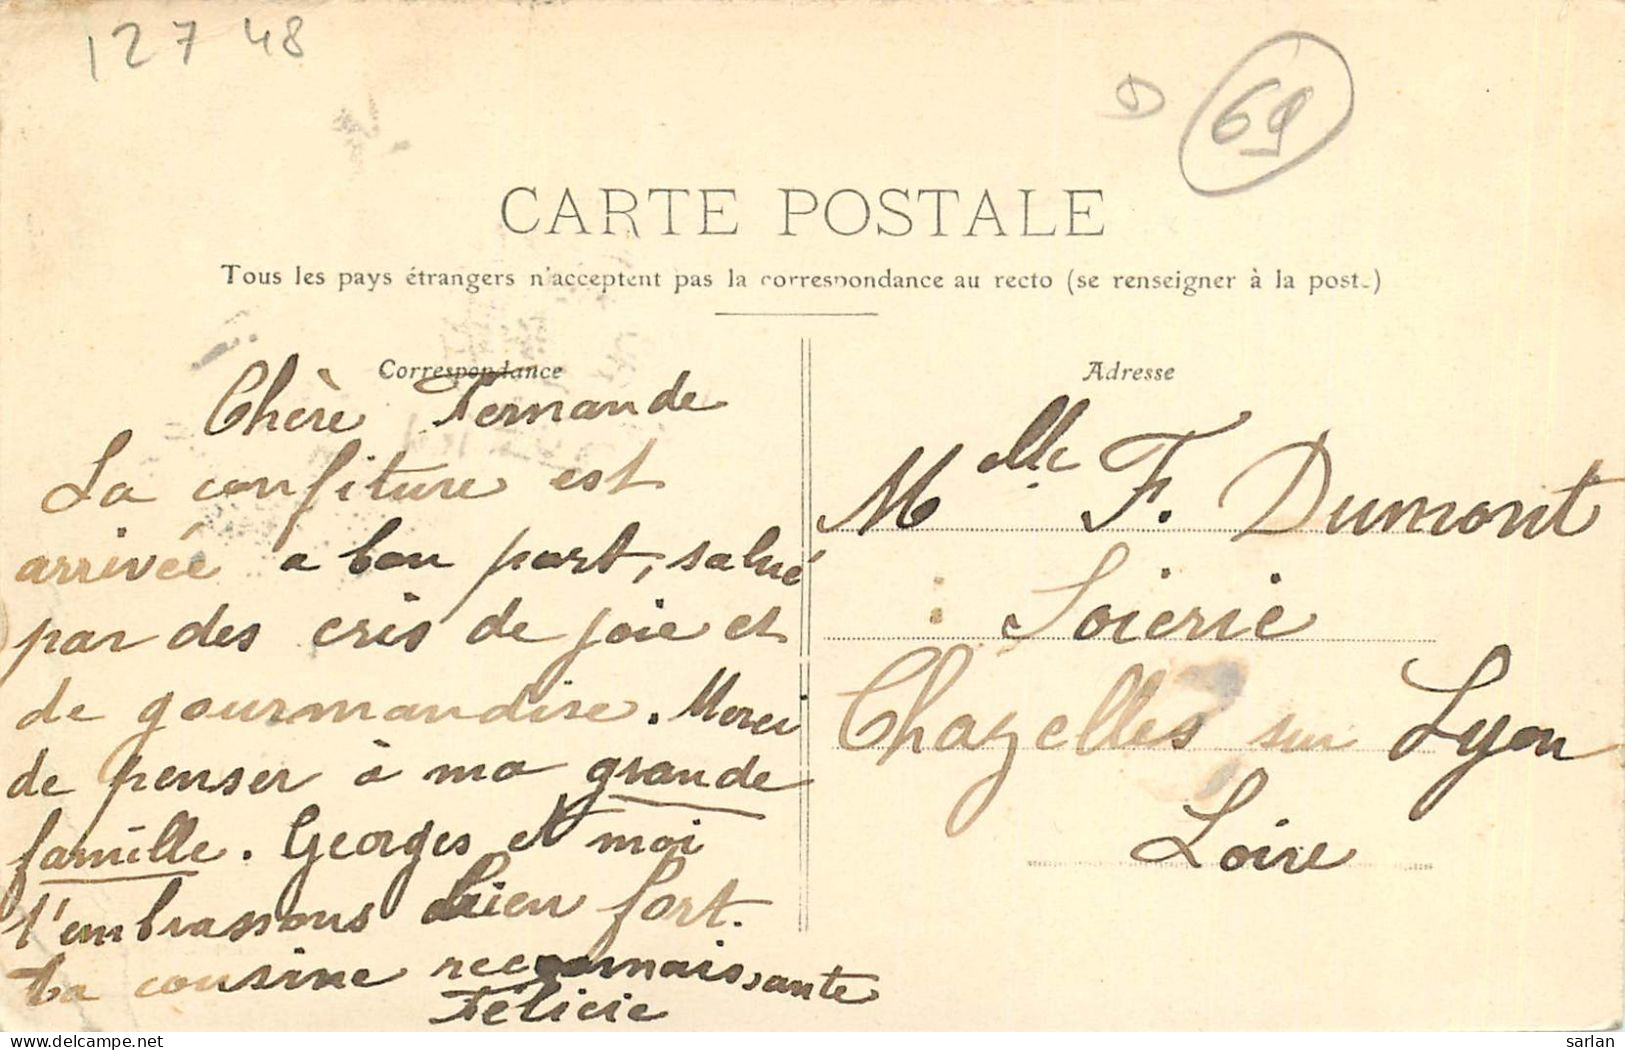 12748
69
CARTE POSTALE
Tous les pays étrangers n'acceptent pas la correspondance au recto (se renseigner à la poste)
Correspondance
Chère Fernande
La confiture est
arrivée a bon port, salué
par des cris de joie et
de gourmandise. Merci
de penser à ma grande
famille. Georges et moi
t'embrassons bien fort.
Ta cousine reconnaissante
Félicie
Adresse
Melle F. Dumont
Soierie
Chazelles sur Lyon
Loire
delcampe.net
sarlan